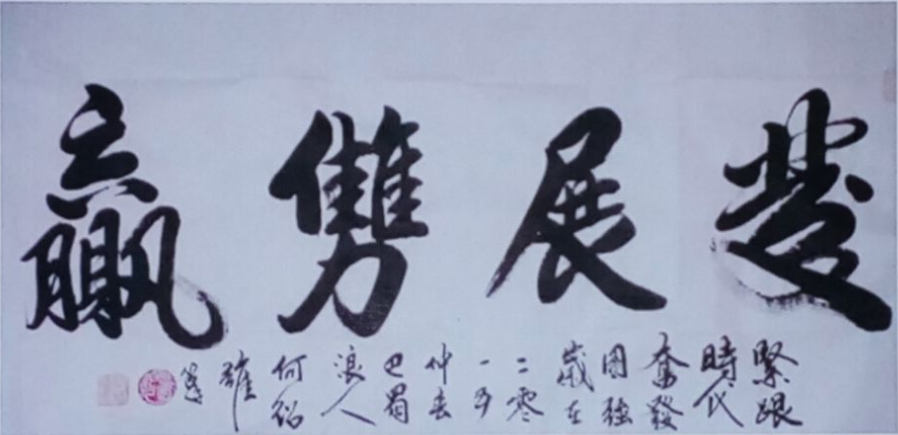 發展雙贏
緊跟
時代
奮發
圖強
歲在
二零
一五
仲春
巴蜀
浪人
何紹
雍